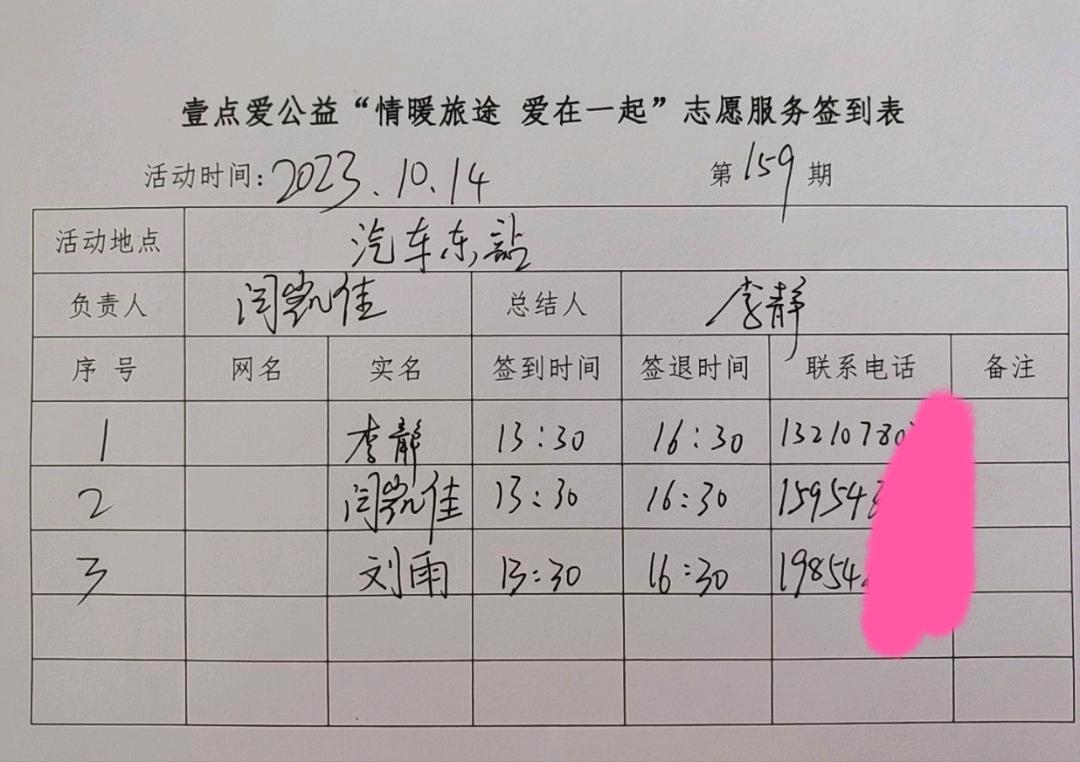 壹点爱公益“情暖旅途 爱在一起”志愿服务签到表
活动时间:2023.10.14 第159期
活动地点 汽车东站
负责人 闫凯佳 总结人 李静
序号 网名 实名 签到时间 签退时间 联系电话 备注
1 李静 13:30 16:30 1321078
2 闫凯佳 13:30 16:30 15954
3 刘雨 13:30 16:30 19854